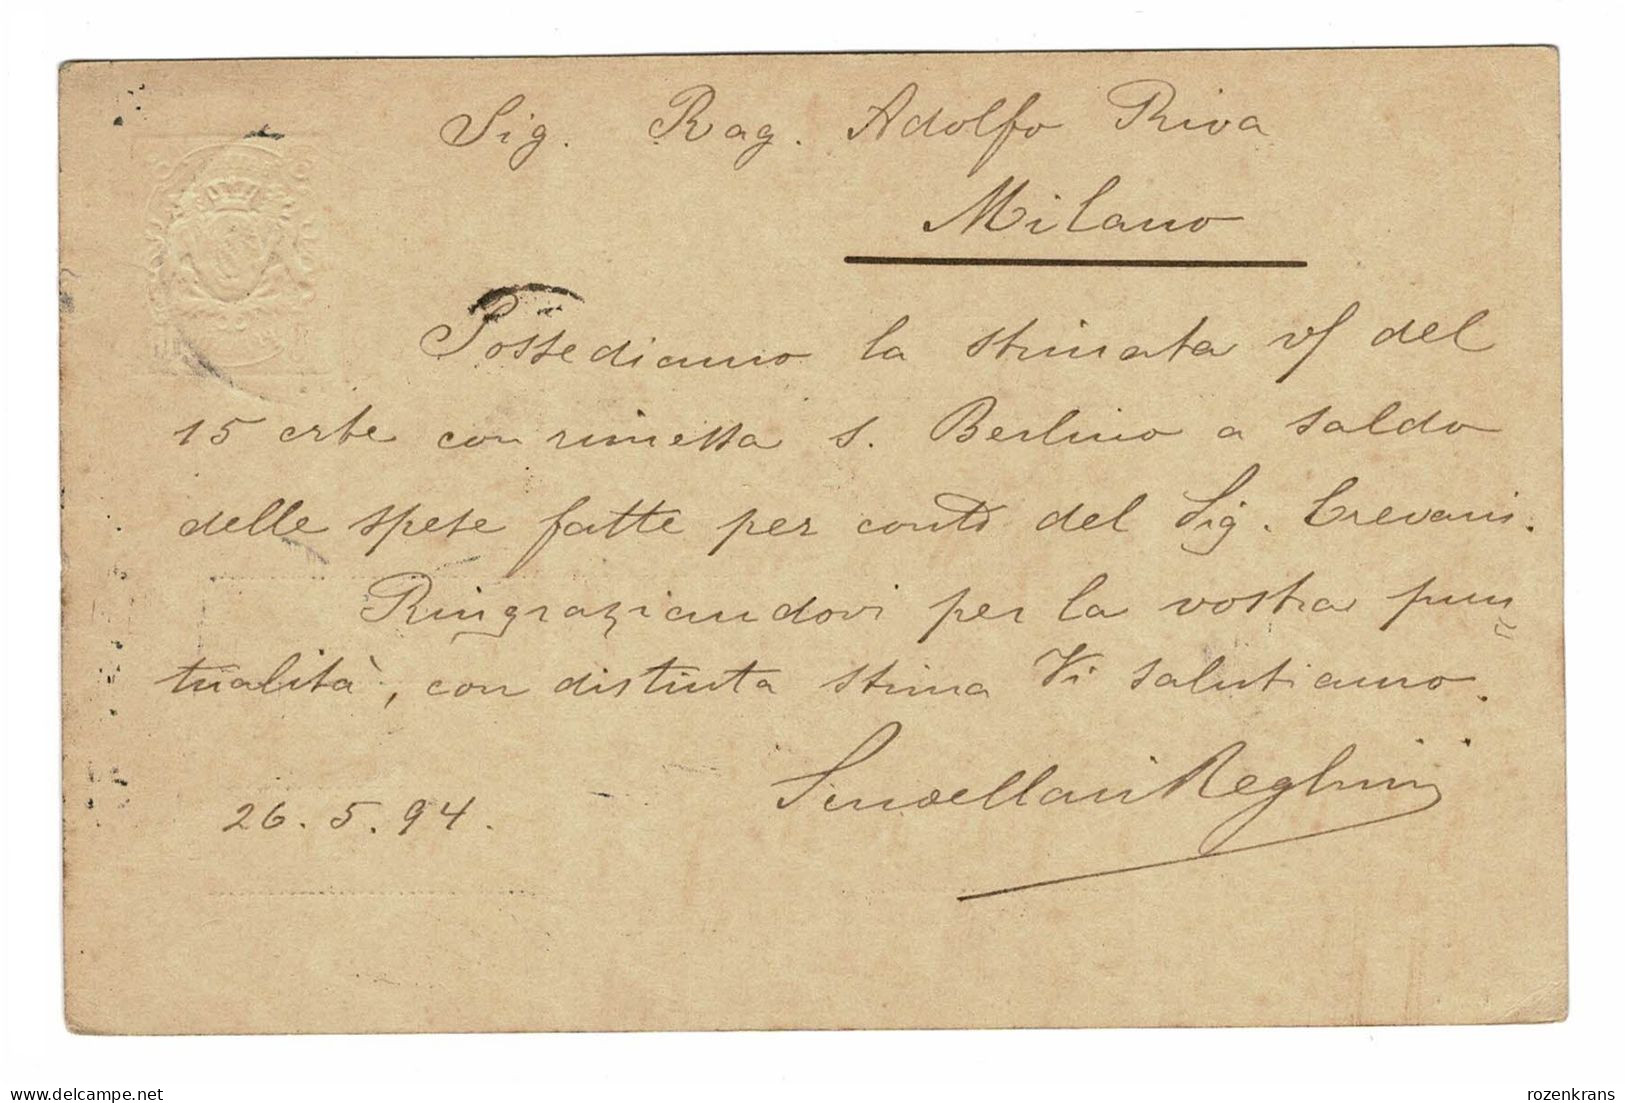 Sig. Rag. Adolfo Riva
Milano
Possediamo la stimata v/ del
15 crte con rimessa s. Berlino a saldo
delle spese fatte per conto del Sig. Crevani.
Ringraziandovi per la vostra pun
tualità, con distinta stima Vi salutiamo.
26.5.94.
Reghini
rozenkrans